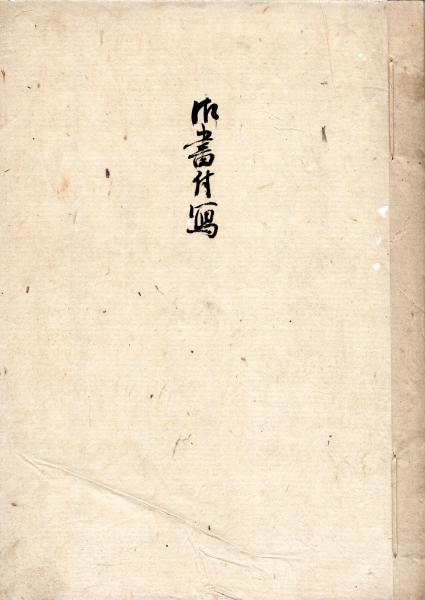 御書付写